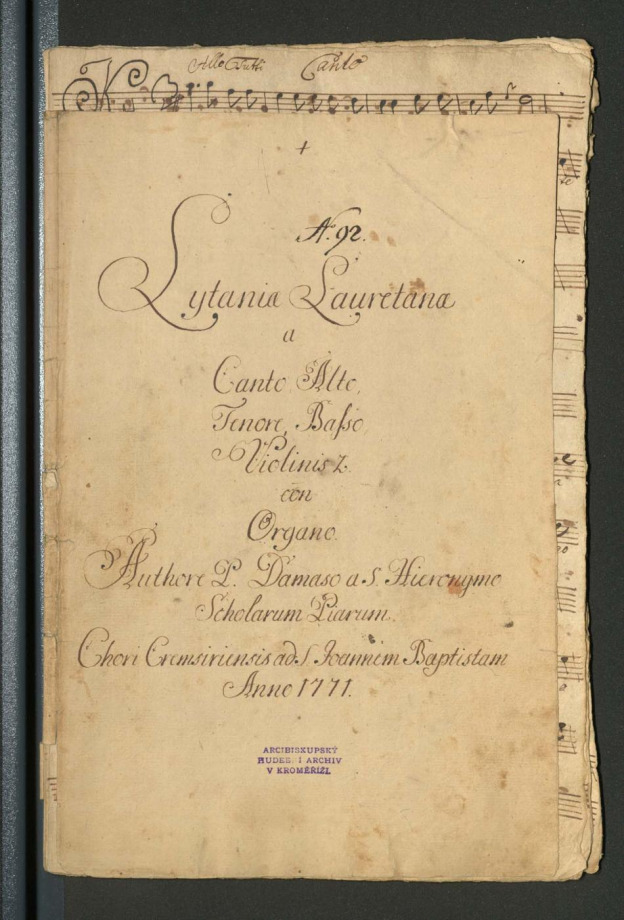 Allo Tutti Canto
+
N. 92.
Lytaniæ Lauretanæ
a
Canto Alto,
Tenore, Baſso,
Violinis 2.
con
Organo.
Authore P. Damaso a S. Hieronymo
Scholarum Piarum.
Chori Cremsiriensis ad S. Joannem Baptistam
Anno 1771.
ARCIBISKUPSKÝ
HUDEB I ARCHIV
V KROMĚŘÍŽI.